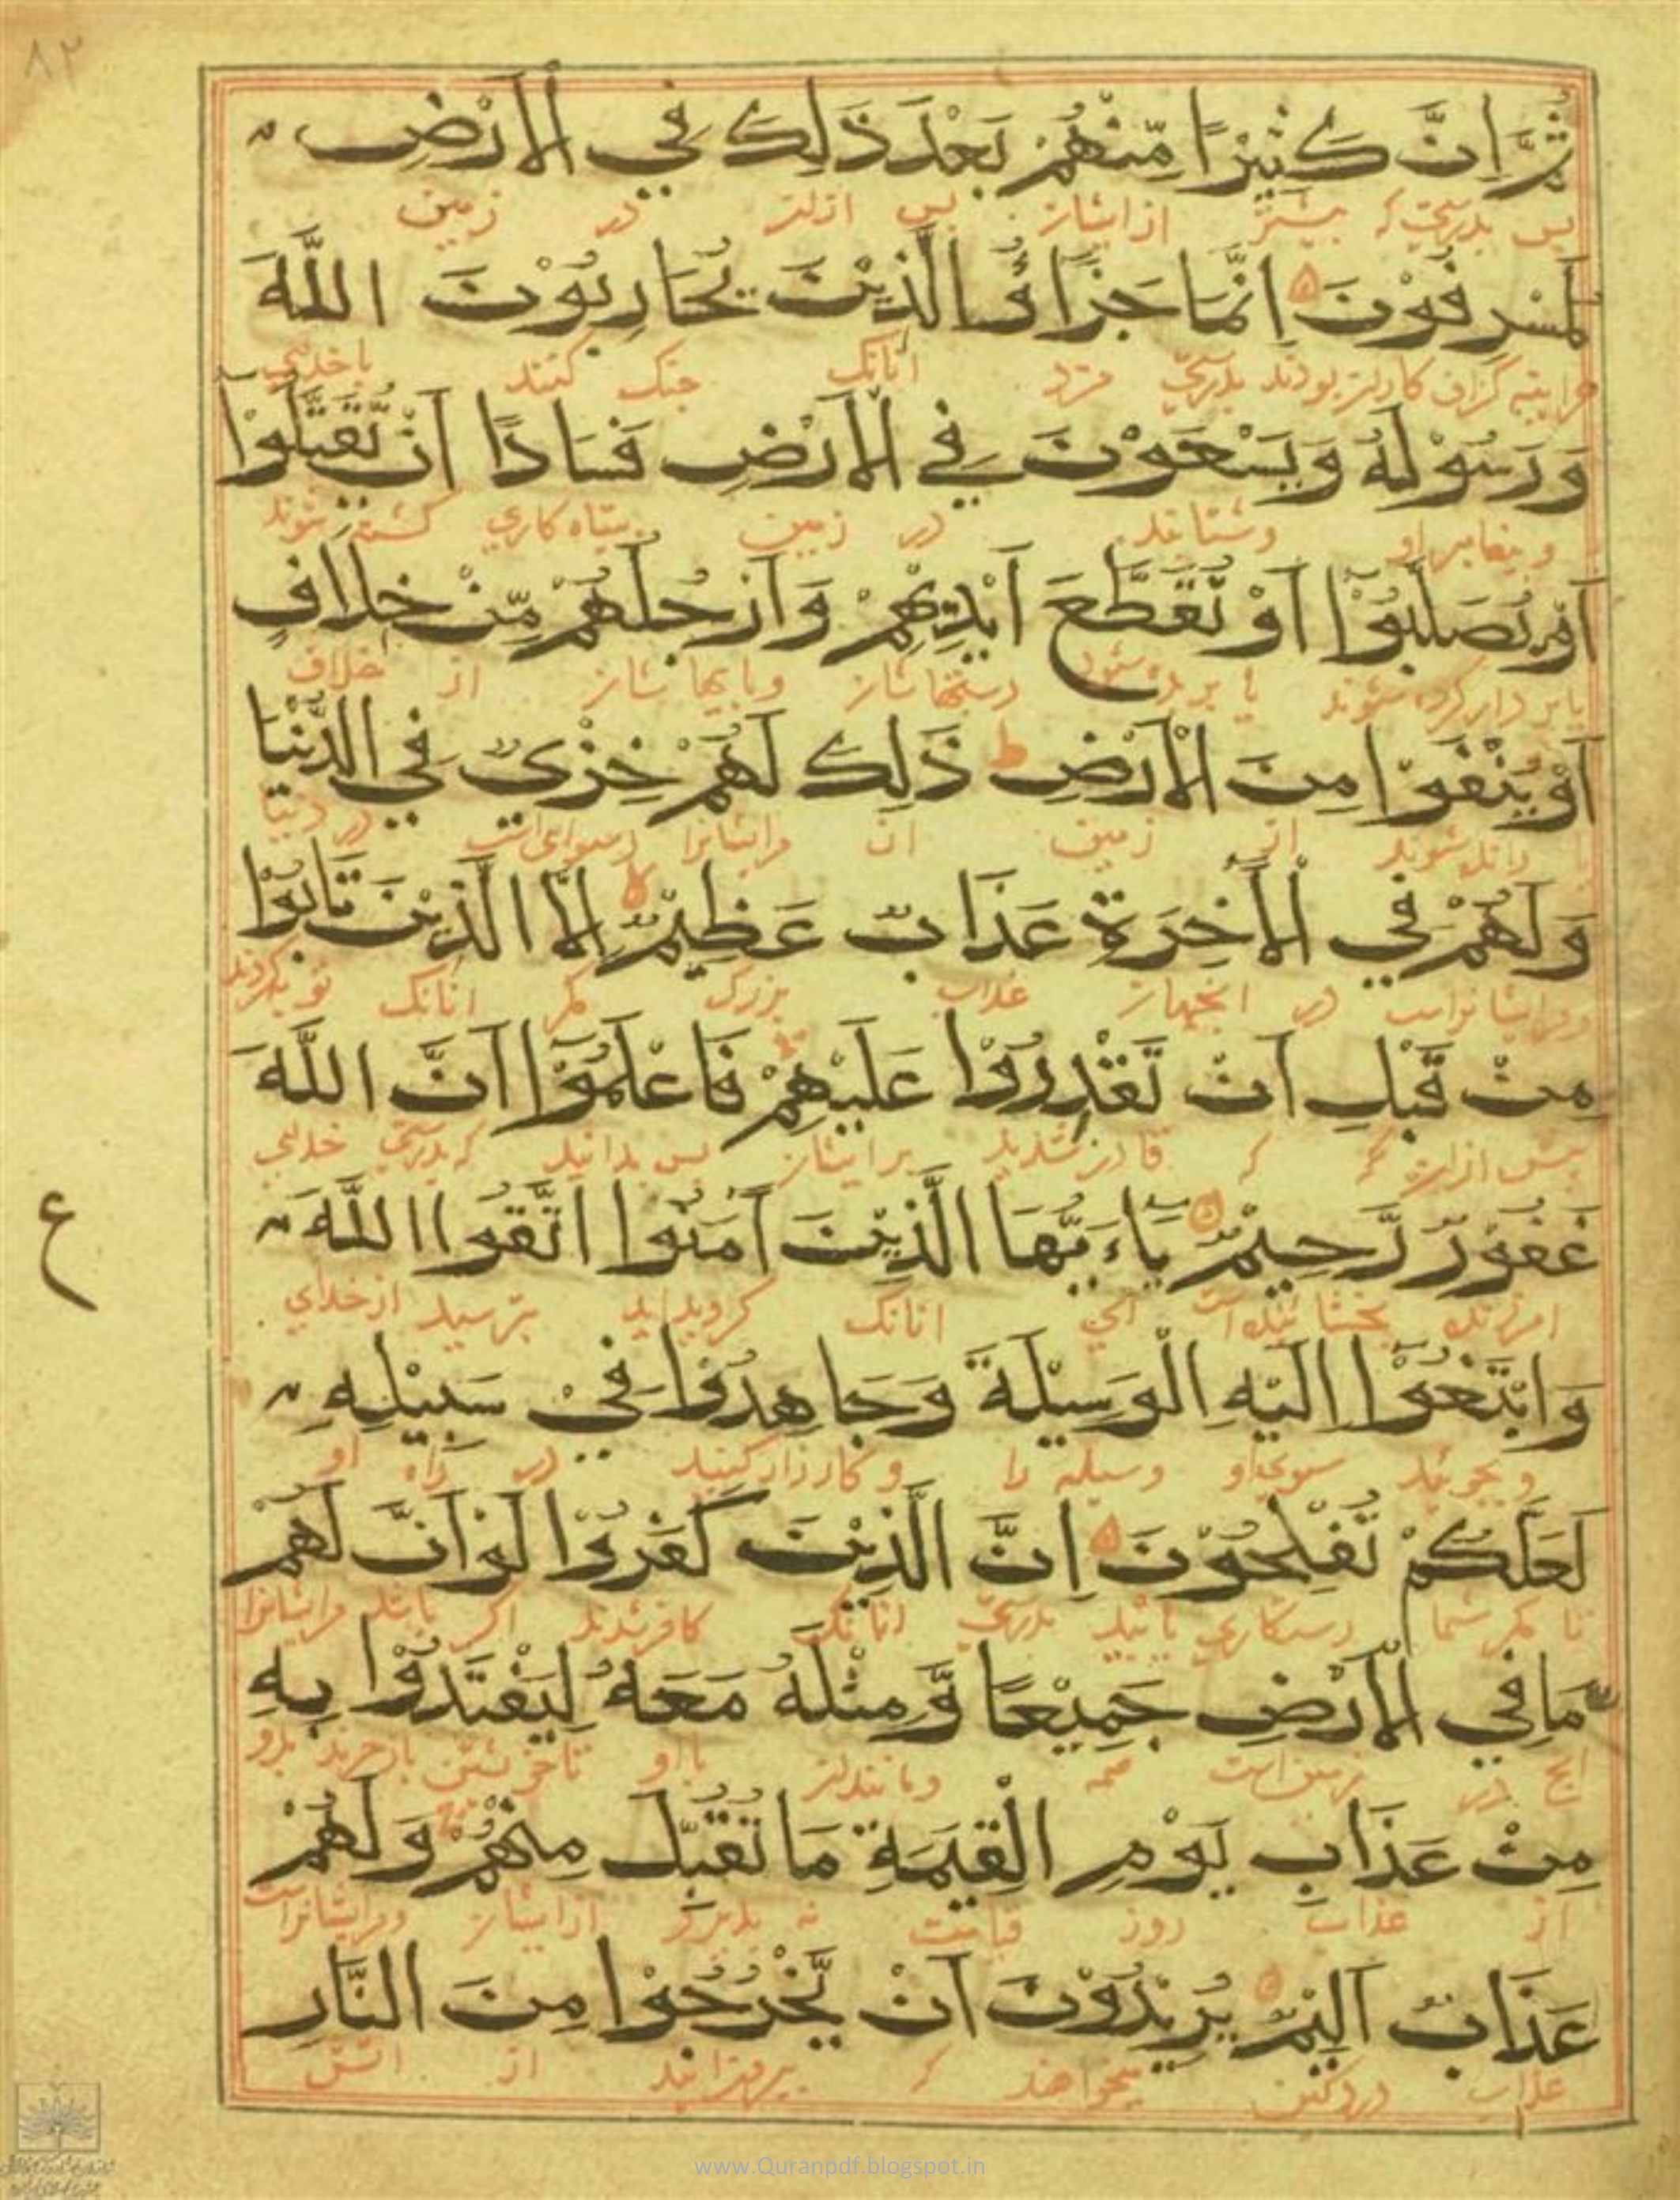 ٨٢
ثُمَّ اِنَّ كَثِيْرًا مِّنْهُمْ بَعْدَ ذَلِكَ فِي الْاَرْضِ
پس بدرستی که بیشتر از ایشان پس ازان در زمین
لَمُسْرِفُوْنَ اِنَّمَا جَزَاؤُا الَّذِيْنَ يُحَارِبُوْنَ اللَّهَ
بودند بدرستی مزد آنانک جنک کنند با خدای
وَرَسُوْلَهُ وَيَسْعَوْنَ فِي الْاَرْضِ فَسَادًا اَنْ يُّقَتَّلُوْا
و پیغامبر او وشتابند در زمین بتباه کاری کشته شوند
اَوْ يُصَلَّبُوْا اَوْ تُقَطَّعَ اَيْدِيْهِمْ وَاَرْجُلُهُمْ مِّنْ خِلَافٍ
یا بر دار کرده شوند یا بریده شود دستهاشان وپایها شان از خلاف
اَوْ يُنْفَوْا مِنَ الْاَرْضِ ط ذَلِكَ لَهُمْ خِزْيٌ فِي الدُّنْيَا
شوند از زمین آن مرایشانرا رسوایی است در دنیا
وَلَهُمْ فِي الْاٰخِرَةِ عَذَابٌ عَظِيْمٌ لا اِلَّا الَّذِيْنَ تَابُوْا
ومرایشانراست در آنجهان عذاب بزرک مکر آنانک توبه کردند
مِنْ قَبْلِ اَنْ تَقْدِرُوْا عَلَيْهِمْ فَاعْلَمُوْا اَنَّ اللَّهَ
پیش ازان که قادر شدید برایشان پس بدانید که بدرستی خدای
غَفُوْرٌ رَّحِيْمٌ يَاءَيُّهَا الَّذِيْنَ اٰمَنُوا اتَّقُوا اللَّهَ
امرزنده بخشاینده است ای آنانک کرویدید بترسید از خدای
ع
وَابْتَغُوْا اِلَيْهِ الْوَسِيْلَةَ وَجَاهِدُوْا فِيْ سَبِيْلِهِ
و بجویید سوی او وسیله را و کارزار کنید در راه او
لَعَلَّكُمْ تُفْلِحُوْنَ اِنَّ الَّذِيْنَ كَفَرُوْا لَوْ اَنَّ لَهُمْ
تا مکر شما رستکاری یابید بدرستی آنانک کافر شدند اکر باشد مرایشانرا
مَا فِي الْاَرْضِ جَمِيْعًا وَّمِثْلَهُ مَعَهُ لِيَفْتَدُوْا بِهِ
آنچ در زمین است همه ومانندان با او تا خویشتن باز خرند بدو
مِنْ عَذَابِ يَوْمِ الْقِيٰمَةِ مَا تُقُبِّلَ مِنْهُمْ وَلَهُمْ
از عذاب روز قیامت نه از ایشان ومرایشانراست
عَذَابٌ اَلِيْمٌ يُرِيْدُوْنَ اَنْ يَّخْرُجُوْا مِنَ النَّارِ
عذاب دردکین میخواهند که بیرون آیند از آتش
www.Quranpdf.blogspot.in